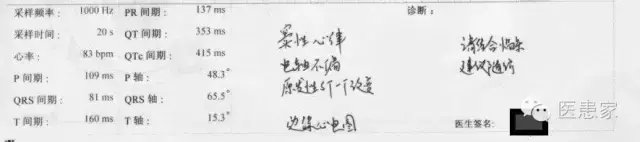 采样频率： 1000 Hz PR 间期： 137 ms 诊断：
采样时间： 20 s QT 间期： 353 ms
心率： 83 bpm QTc 间期： 415 ms
P 间期： 109 ms P 轴： 48.3°
QRS 间期： 81 ms QRS 轴： 65.5°
T 间期： 160 ms T 轴： 15.3°
窦性心律
电轴不偏
原发性ST-T改变
边缘心电图
请结合临床
医生签名:
医患家